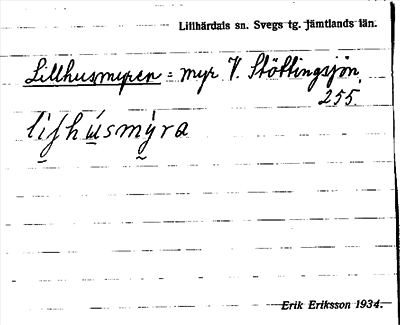 Lillhärdals sn. Svegs tg. Jämtlands län.
Lillhusmyren = myr V. Stöttingsjön,
255
liſhúsmýra
Erik Eriksson 1934.